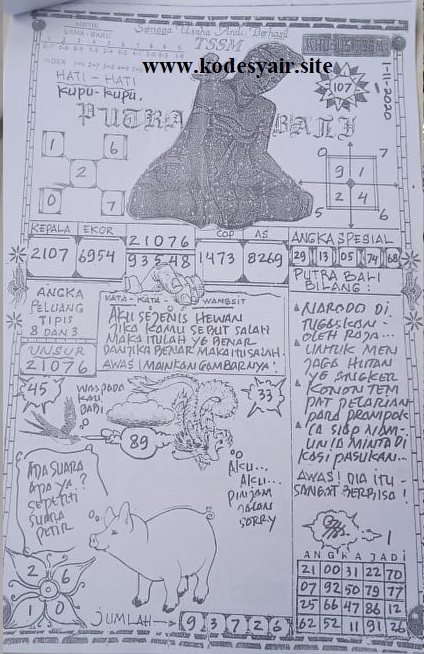 Semoga Usaha Anda Berhasil
TSSM
www.kodesyair.site
HATI - HATI
KUPU-KUPU.
107
1-11-2020
PUTRA BALI
1 6
2
0 7
0 7
9 1
2 4
5 6
KEPALA EKOR
2107 6954
21076
93548
COP AS
1473 8269
ANGKA SPESIAL
29 13 05 74 68
ANGKA
PELUANG
TIPIS
8 DAN 3
UNSUR
21076
KATA - KATA WANGSIT
AKU SEJENIS HEWAN
JIKA KAMU SEBUT SALAH
MAKA ITULAH YG BENAR
DAN JIKA BENAR MAKA ITU SALAH.
AWAS! MAINKAN GAMBARNYA!
PUTRA BALI
BILANG:
NARODO DI
TUGASKAN
OLEH RAJA...
UNTUK MEN
JAGA HUTAN
YG ANGKER
KONON TEM
PAT PELARIAN
PARA PRAMPOK
IA SIAP NAM-
UN IA MINTA DI
KASI PASUKAN...
AWAS! DIA ITU
SANGAT BERBISA!
45
WASPADA
KAU
DARI
33
89
ADA SUARA
APA YA?
SEPERTI
SUARA
PETIR
AKU...
AKU...
PINJAM
JALAN
SORRY
2 6
1 0
JUMLAH
9 3 7 2 6
ANGKA JADI
21 00 31 22 70
07 92 50 79 77
25 66 47 86 12
62 52 11 91 26